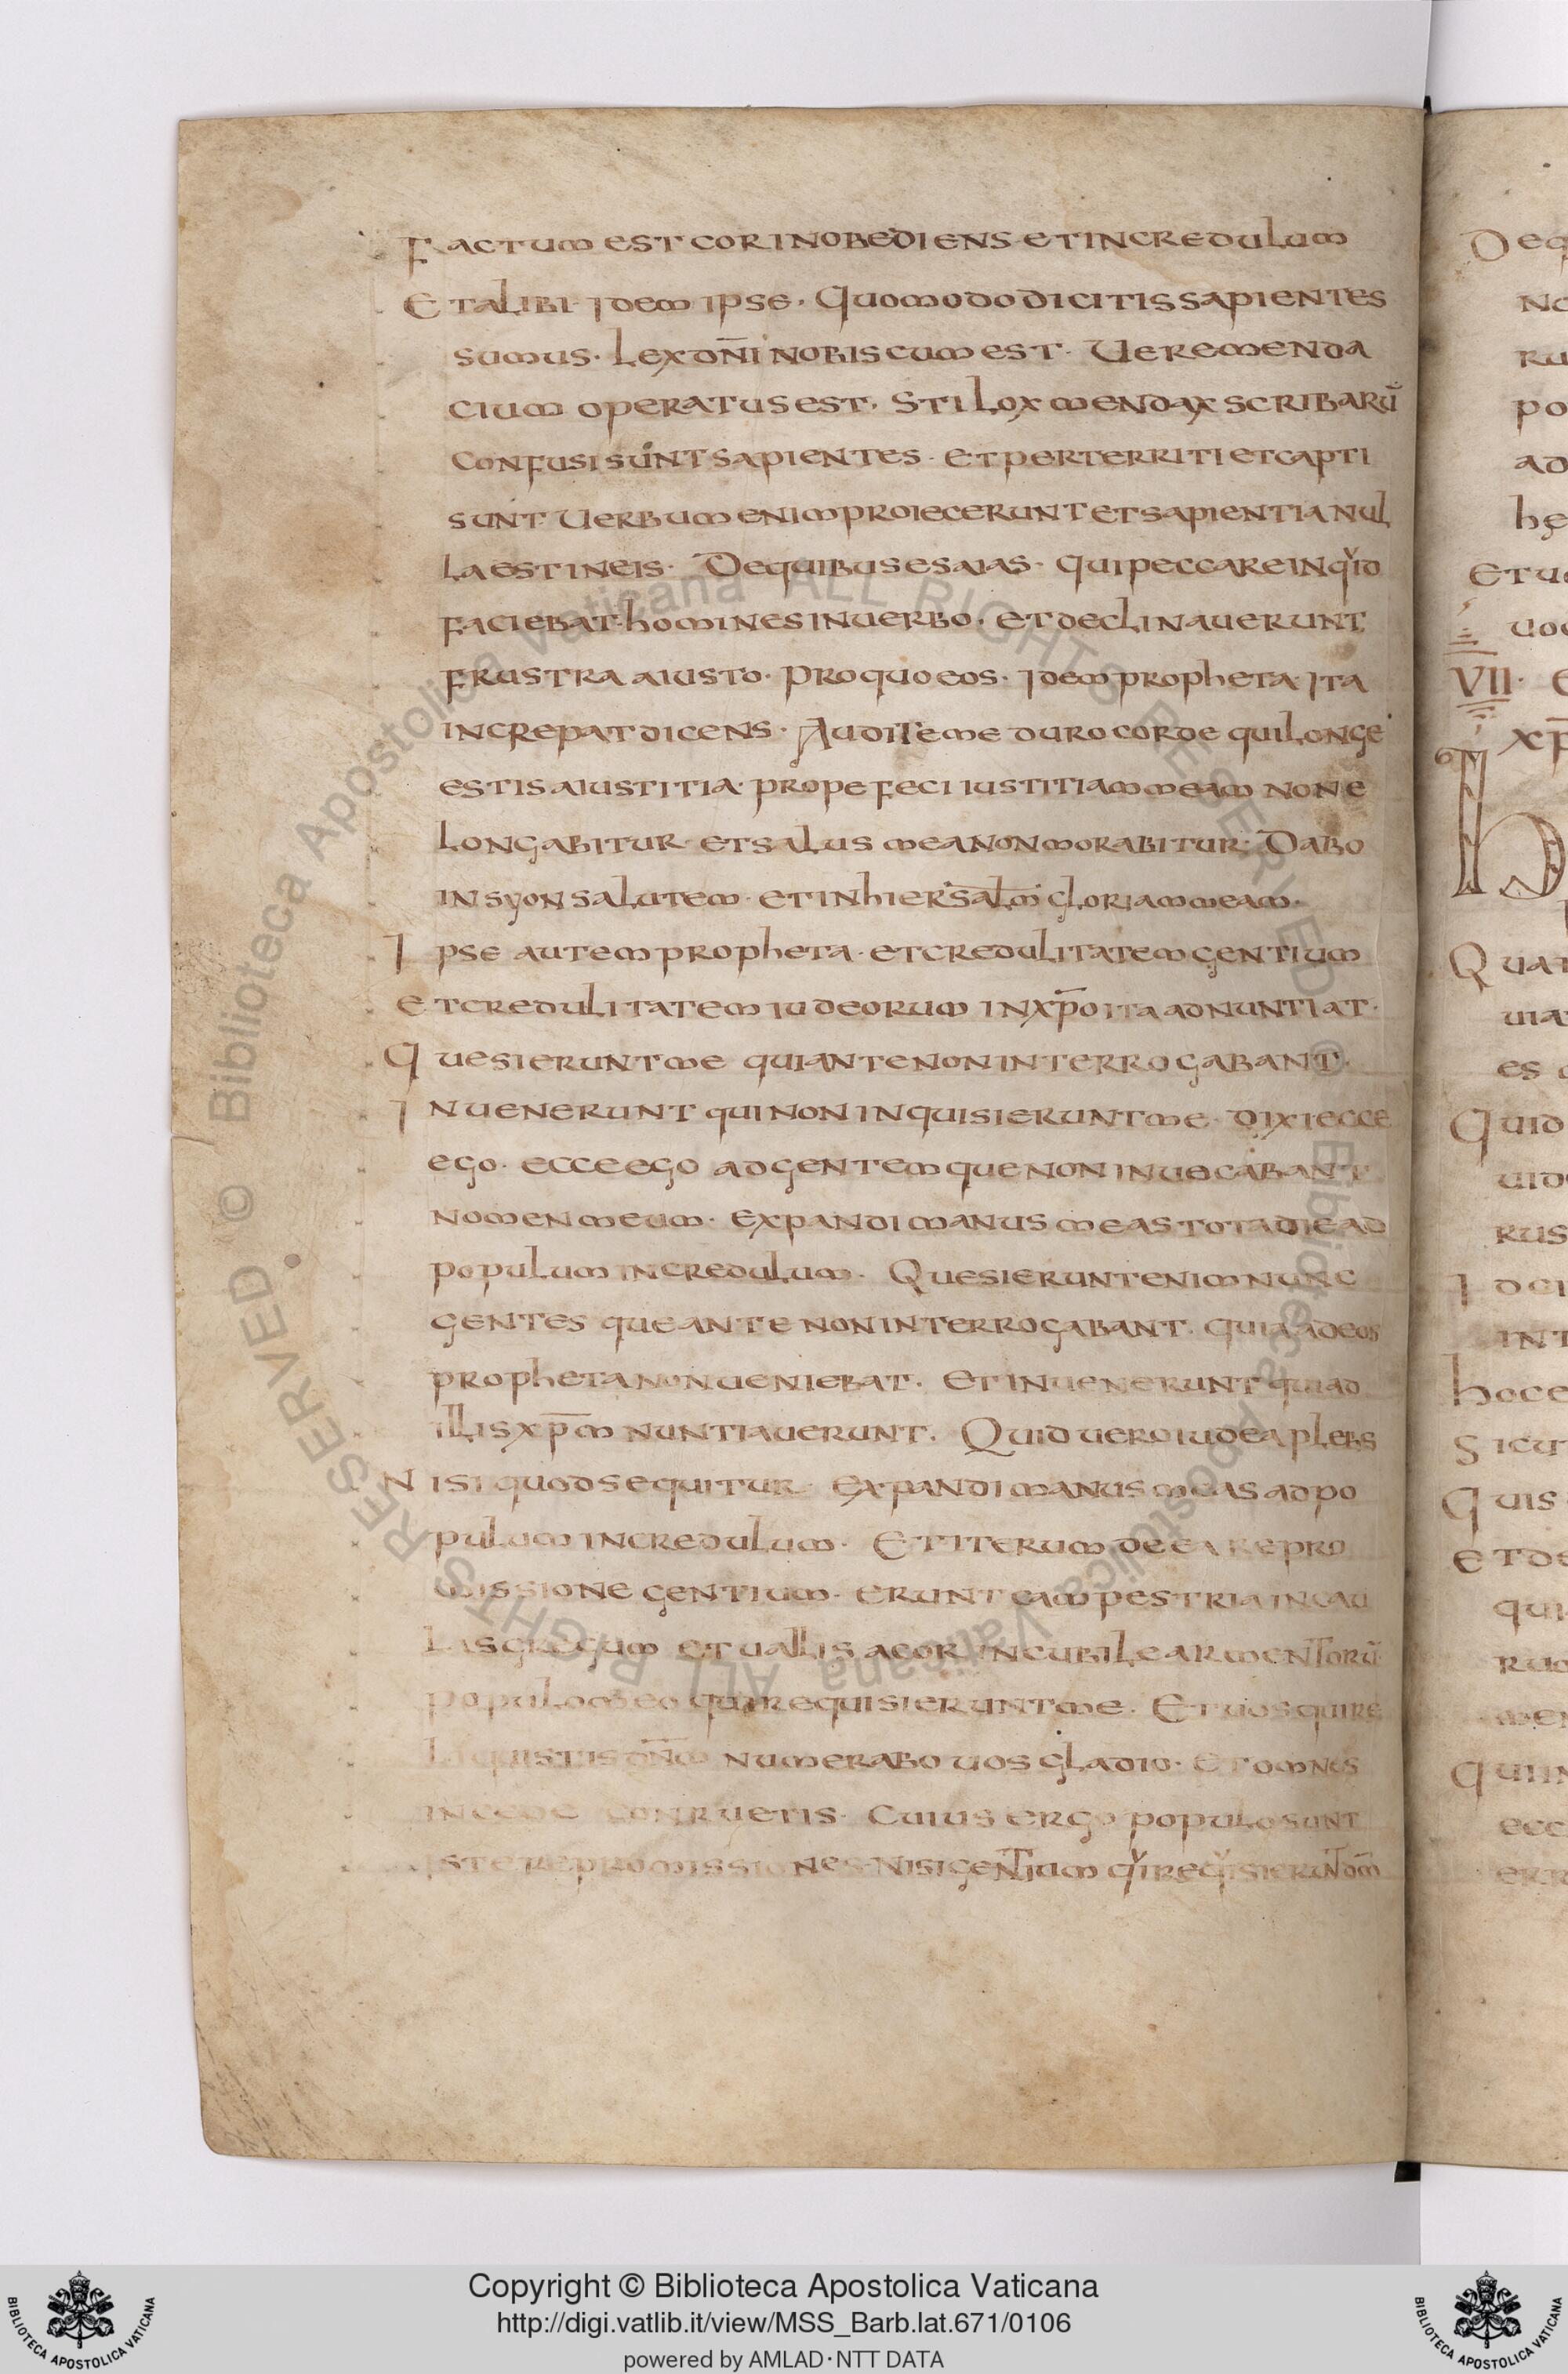 FACTUM EST COR INOBEDIENS ET INCREDULUM
ET ALIBI IDEM IPSE. QUOMODO DICITIS SAPIENTES
SUMUS. LEX DN̅I NOBISCUM EST. UERE MENDA
CIUM OPERATUS EST. STILOX MENDAX SCRIBARŪ
CONFUSI SUNT SAPIENTES. ET PERTERRITI ET CAPTI
SUNT UERBUM ENIM PROIECERUNT ET SAPIENTIA NUL
LA EST IN EIS. DE QUIBUS ESAIAS. QUI PECCARE INQID
FACIEBAT HOMINES IN UERBO. ET DECLINAUERUNT
FRUSTRA A IUSTO. PRO QUO EOS. IDEM PROPHETA ITA
INCREPAT DICENS. AUDITE ME DURO CORDE QUI LONGE
ESTIS A IUSTITIA. PROPE FECI IUSTITIAM MEAM NON E
LONGABITUR ET SALUS MEA NON MORABITUR. DABO
IN SYON SALUTEM. ET IN HIERSAL̅M GLORIAM MEAM.
IPSE AUTEM PROPHETA. ET CREDULITATEM GENTIUM
ET CREDULITATEM IUDEORUM IN XP̅O ITA ADNUNTIAT.
QUESIERUNT ME QUI ANTE NON INTERROGABANT.
INUENERUNT QUI NON INQUISIERUNT ME. DIXI ECCE
EGO. ECCE EGO AD GENTEM QUE NON INUOCABANT
NOMEN MEUM. EXPANDI MANUS MEAS TOTA DIE AD
POPULUM INCREDULUM. QUESIERUNT ENIM NUNC
GENTES QUE ANTE NON INTERROGABANT. QUIA AD EOS
PROPHETA NON UENIEBAT. ET INUENERUNT QUI AD
ILLIS XP̅M NUNTIAUERUNT. QUID UERO IUDEA PLEBS
NISI QUOD SEQUITUR. EXPANDI MANUS MEAS AD PO
PULUM INCREDULUM. ET ITERUM DE EA REPRO
MISSIONE GENTIUM. ERUNT CAMPESTRIA IN CAU
LAS GREGUM ET UALLIS ACOR IN CUBILE ARMENTORŪ
POPULO MEO QUI REQUISIERUNT ME. ET UOS QUI RE
LIQUISTIS DN̅M NUMERABO UOS GLADIO. ET OMNES
IN CEDE CONRUETIS. CUIUS ERGO POPULO SUNT
ISTE REPROMISSIONES NISI GENTIUM QI REQISIERUNT DM̅
DEQ
NO
RU
PO
AD
HE
ET U
UO
VII. E
XP
H
QUAT
UIA
ES
QUID
UID
RUS
ID CI
INT
HOC E
SICU
QUIS
ET DE
QUI
RUO
MEN
QUI IN
ECC
ERR
Copyright © Biblioteca Apostolica Vaticana
http://digi.vatlib.it/view/MSS_Barb.lat.671/0106
powered by AMLAD·NTT DATA
BIBLIOTECA APOSTOLICA VATICANA
BIBLIOTECA APOSTOLICA VATICANA
© Biblioteca Apostolica Vaticana ALL RIGHTS RESERVED © Biblioteca Apostolica Vaticana ALL RIGHTS RESERVED